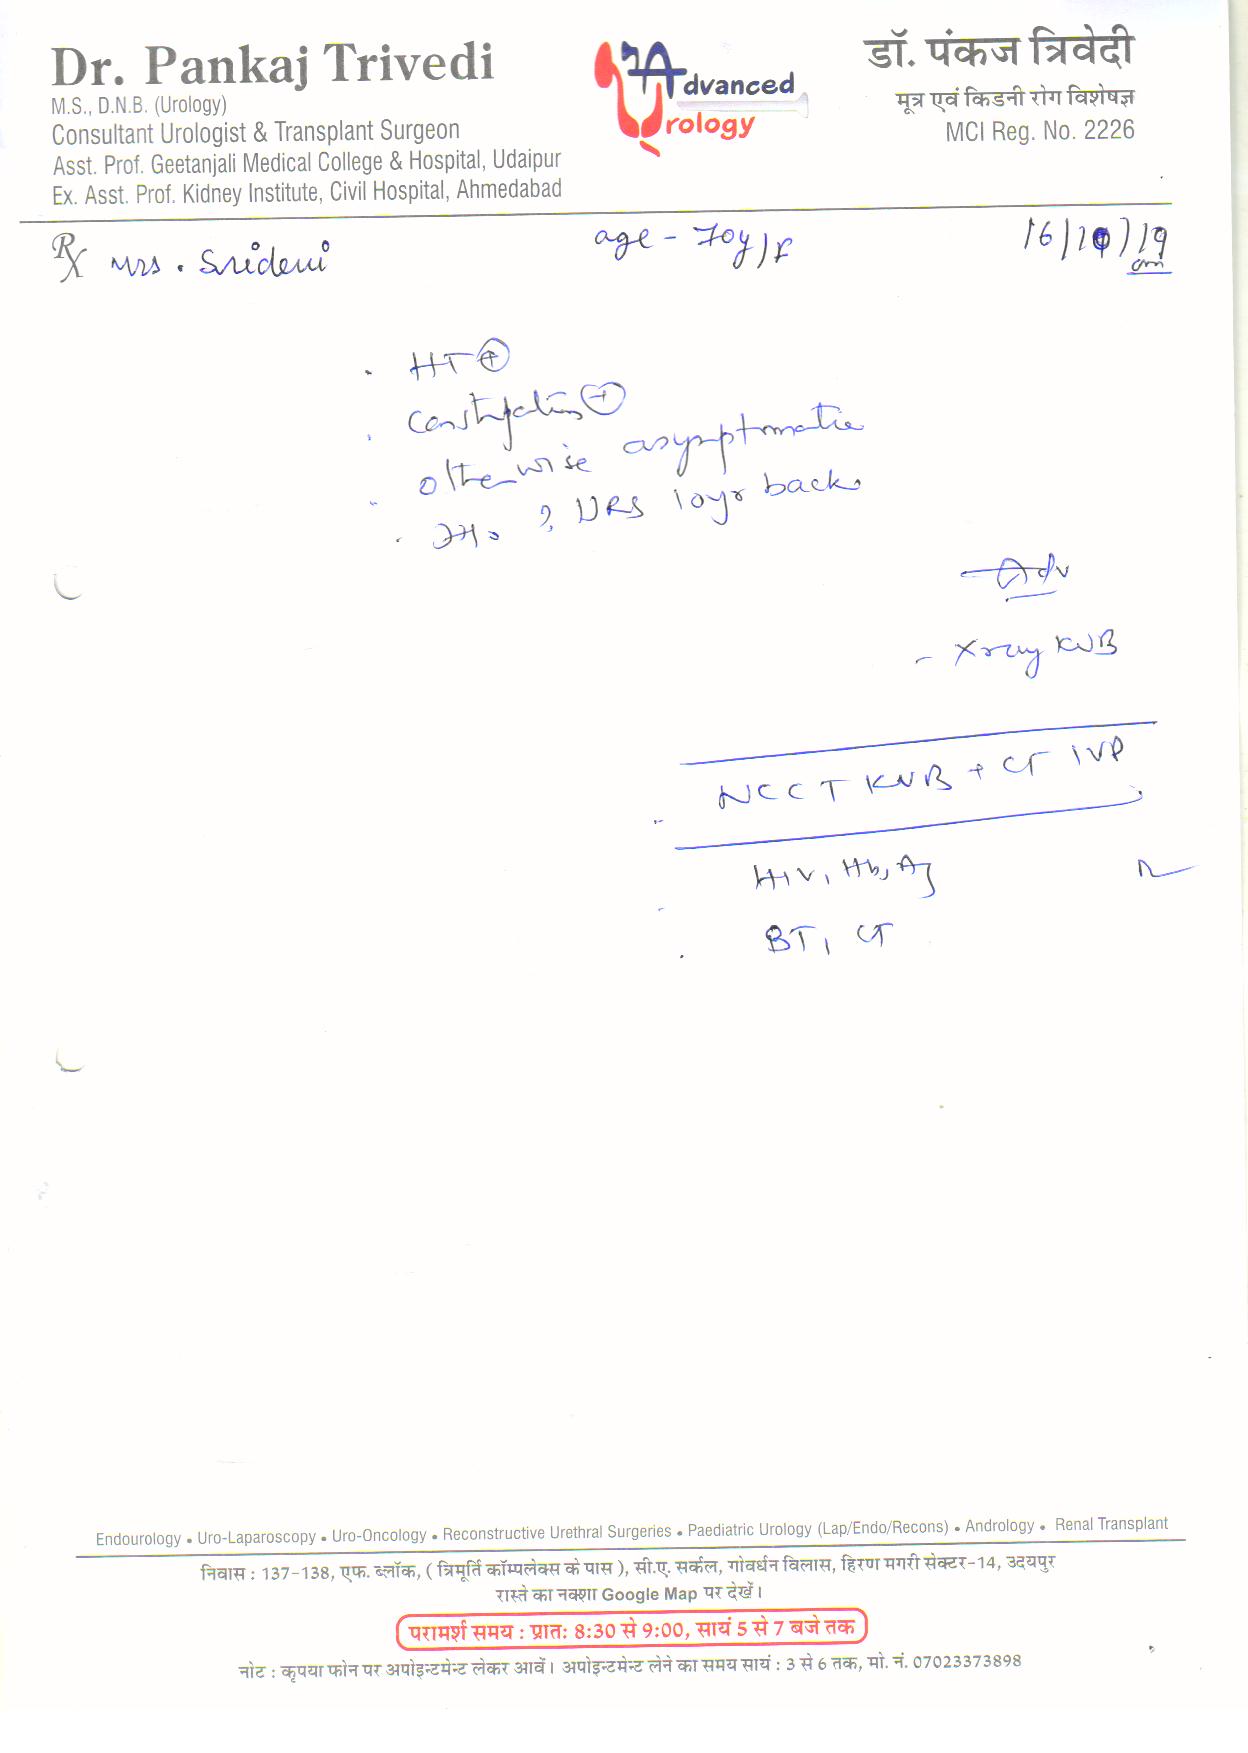 Dr. Pankaj Trivedi
M.S., D.N.B. (Urology)
Consultant Urologist & Transplant Surgeon
Asst. Prof. Geetanjali Medical College & Hospital, Udaipur
Ex. Asst. Prof. Kidney Institute, Civil Hospital, Ahmedabad
Advanced
Urology
डॉ. पंकज त्रिवेदी
मूत्र एवं किडनी रोग विशेषज्ञ
MCI Reg. No. 2226
Rx Mrs. Sridevi age - 70y/F 16/10/19
. HT +
. Constipation +
. otherwise asymptomatic
. ? URS 10yr back
Adv
- Xray KUB
NCCT KUB + CT IVP
HIV, Hbs Ag
BT, CT
Endourology • Uro-Laparoscopy • Uro-Oncology • Reconstructive Urethral Surgeries • Paediatric Urology (Lap/Endo/Recons) • Andrology • Renal Transplant
निवास : 137-138, एफ. ब्लॉक, ( त्रिमूर्ति कॉम्पलेक्स के पास ), सी.ए. सर्कल, गोवर्धन विलास, हिरण मगरी सेक्टर-14, उदयपुर
रास्ते का नक्शा Google Map पर देखें।
परामर्श समय : प्रातः 8:30 से 9:00, सायं 5 से 7 बजे तक
नोट : कृपया फोन पर अपोइन्टमेन्ट लेकर आवें। अपोइन्टमेन्ट लेने का समय सायं : 3 से 6 तक, मो. नं. 07023373898